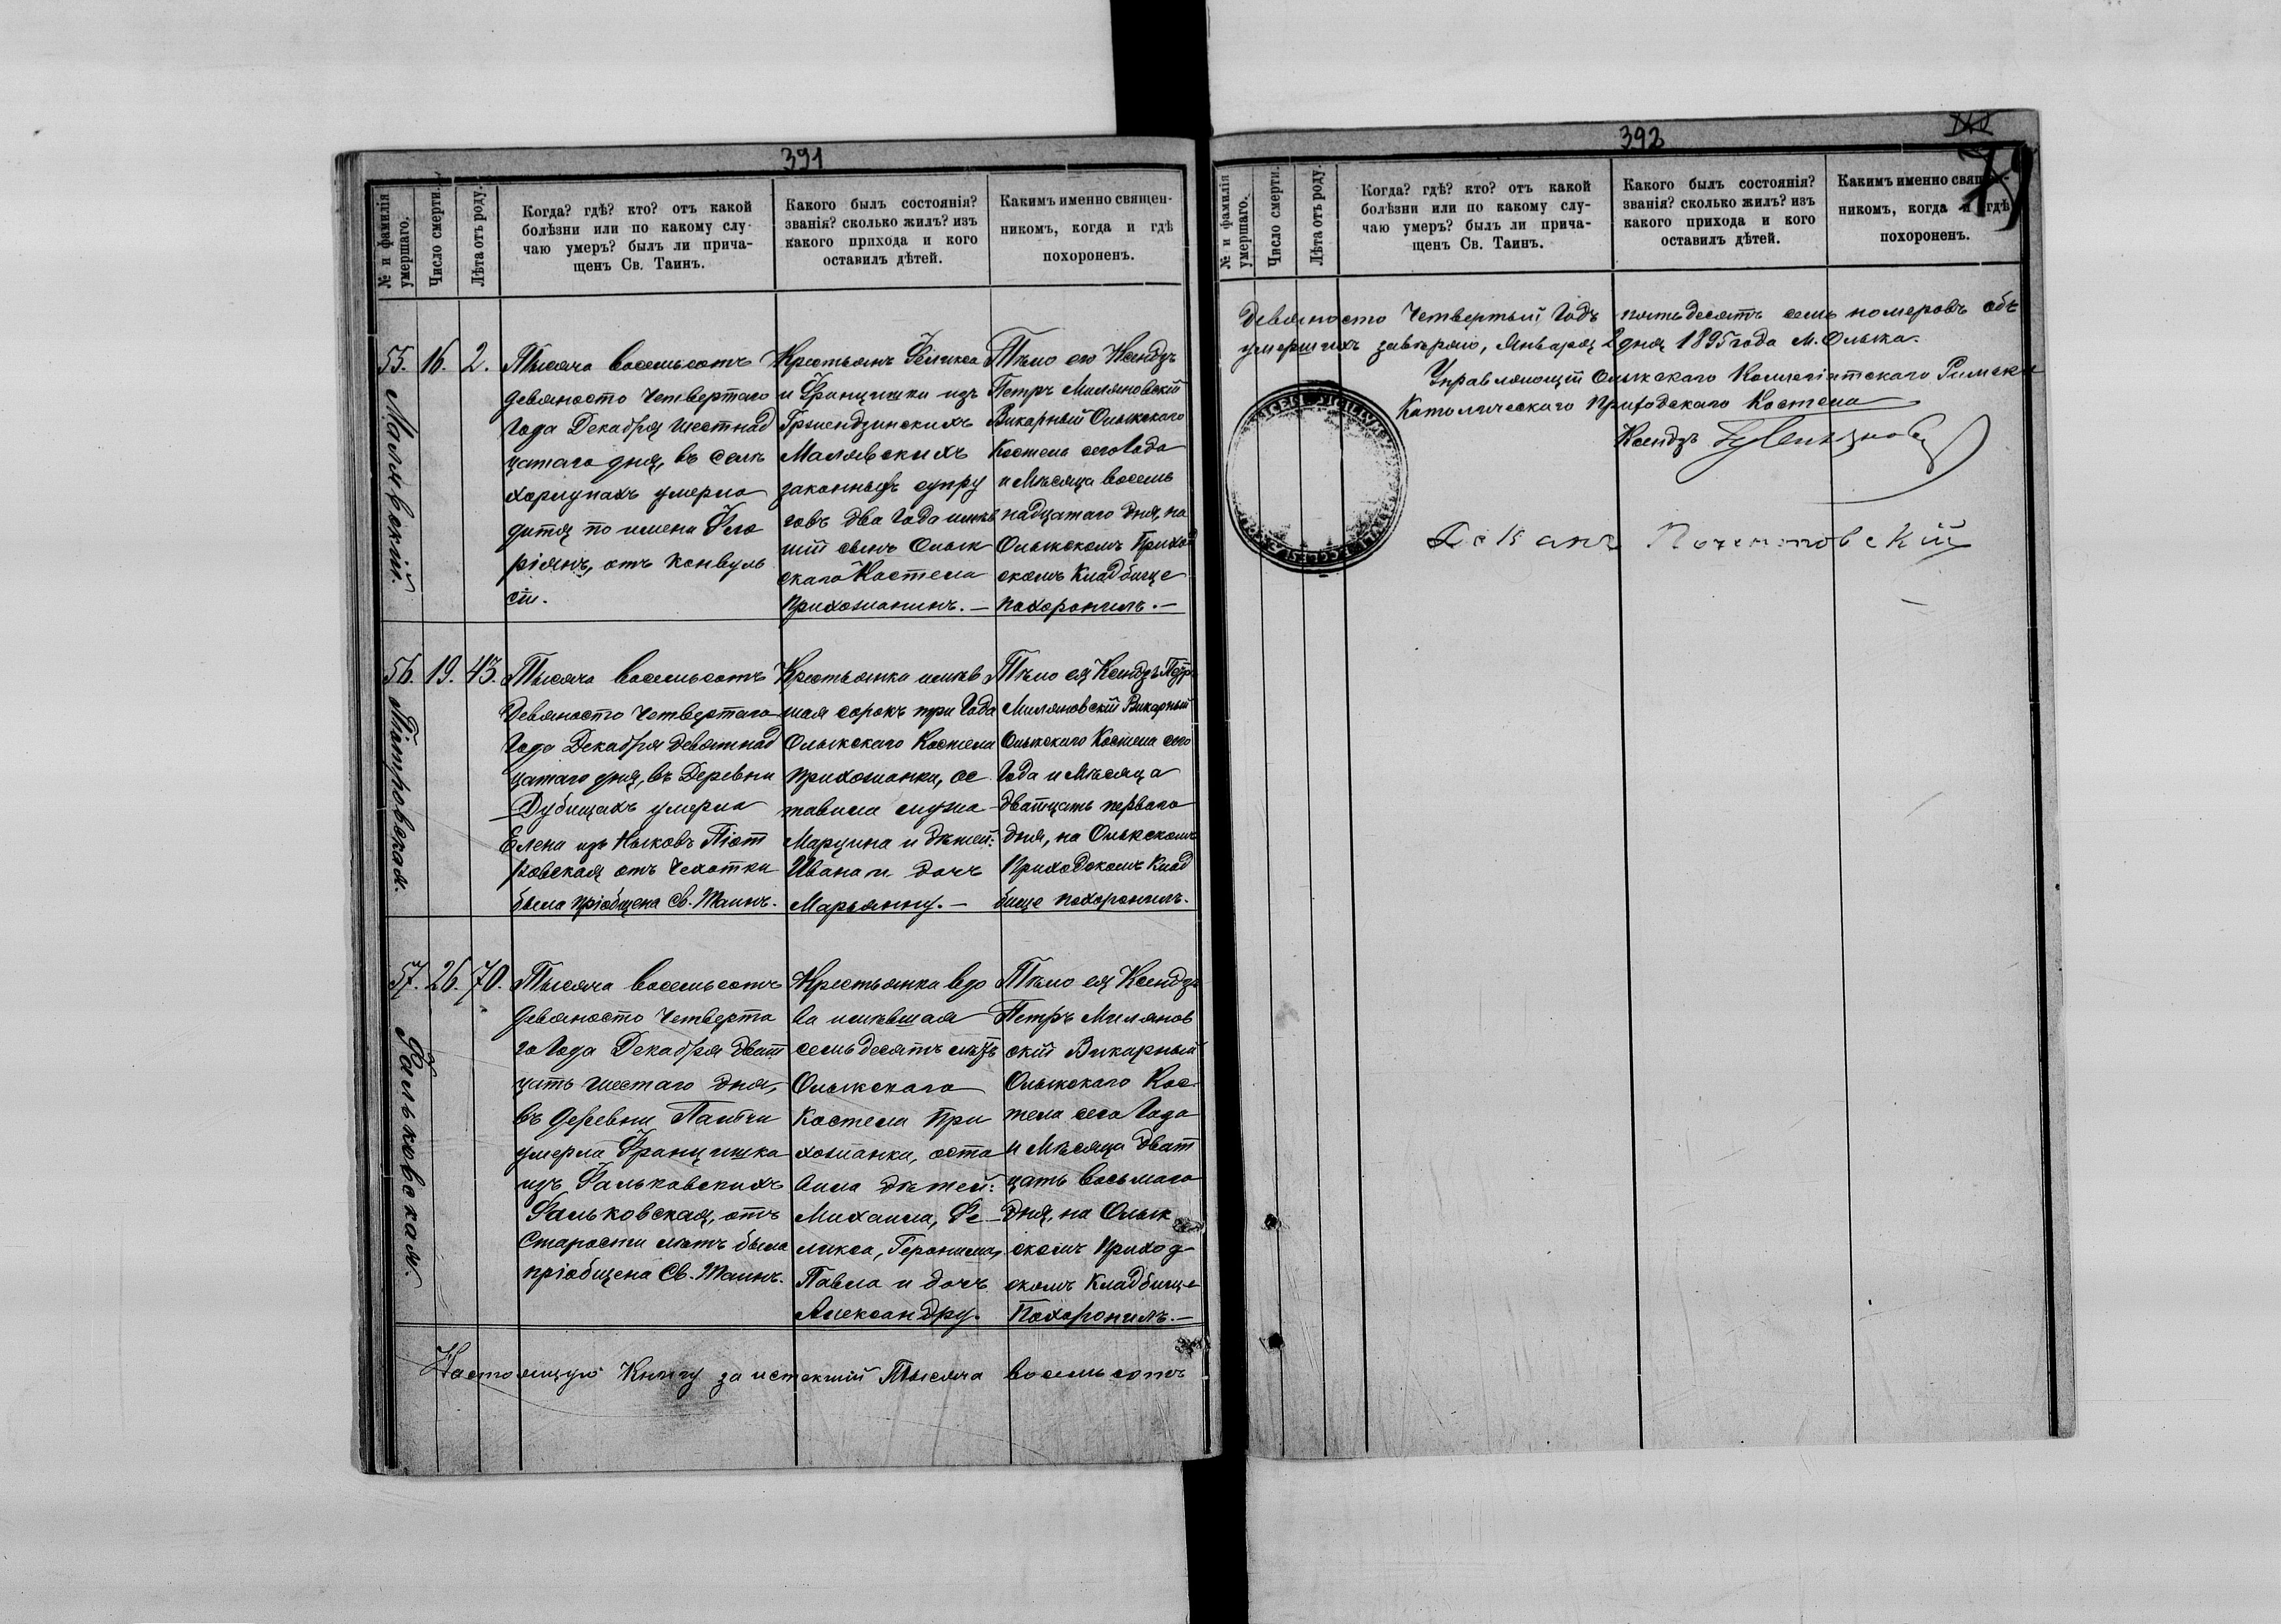 391
№ и фамилія умершаго.
Число смерти.
Лѣта отъ роду.
Когда? гдѣ? кто? отъ какой
болѣзни или по какому слу-
чаю умеръ? былъ ли прича-
щенъ Св. Таинъ.
Какого былъ состоянія?
званія? сколько жилъ? изъ
какого прихода и кого
оставилъ дѣтей.
Какимъ именно священ-
никомъ, когда и гдѣ
похороненъ.
55. Малявскій.
16.
2.
Тысяча восемьсотъ
девяносто Четвертаго
Года Декабря шестнад
цатаго дня, въ селѣ
хорлупахъ умерло
дитя по имени Фло
ріянъ, отъ конвуль
сіи.
Крестьянъ Феликса
и Францишки изъ
Гржендзинскихъ
Малявскихъ
законныхъ супру
говъ два Года имѣв
шій сынъ Олык
скаго Костела
прихожанинъ. —
Тѣло его Ксендзъ
Петръ Миляновскій
Викарный Олыкскаго
Костела сего Года
и Мѣсяца восемь
надцатаго дня, на
Олыкскомъ Приход
скомъ Кладбище
похоронилъ. —
56. Піотровская.
19.
43.
Тысяча восемьсотъ
девяносто Четвертаго
Года Декабря девятнад
цатаго дня, въ Деревни
Дубищахъ умерла
Елена изъ Ныковъ Піот
ровская отъ Чехотки
была пріобщена Св. Таинъ.
Крестьянка имѣв
шая сорокъ три Года
Олыкскаго Костела
прихожанка, ос
тавила мужа
Марцина и дѣтей:
Ивана и дочь
Марьянну. —
Тѣло ея Ксендзъ Петръ
Миляновскій Викарный
Олыкскаго Костела сего
Года и Мѣсяца
дватцать перваго
дня, на Олыкскомъ
Приходскомъ Клад
бище похоронилъ.
57. Фальковская.
26.
70.
Тысяча восемьсотъ
девяносто Четверта
го Года Декабря дват
цать шестаго дня,
въ деревни
умерла Францишка
изъ Фальковскихъ
Фальковская, отъ
Старости лѣтъ была
пріобщена Св. Таинъ.
Крестьянка вдо
ва имѣвшая
семьдесятъ лѣтъ
Олыкскаго
Костела При
хожанка, оста
вила дѣтей:
Михаила, Фе-
ликса, Геронима,
Павла и дочь
Александру.
Тѣло ея Ксендзъ
Петръ Милянов
скій Викарный
Олыкскаго Кос-
тела сего Года
и Мѣсяца дват
цать восьмаго
Дня, на Олык
скомъ Приход-
скомъ Кладбище
Похоронилъ. —
Настоящую Книгу за истекшій Тысяча восемьсотъ
392
79
№ и фамилія умершаго.
Число смерти.
Лѣта отъ роду.
Когда? гдѣ? кто? отъ какой
болѣзни или по какому слу-
чаю умеръ? былъ ли прича-
щенъ Св. Таинъ.
Какого былъ состоянія?
званія? сколько жилъ? изъ
какого прихода и кого
оставилъ дѣтей.
Какимъ именно священ-
никомъ, когда и гдѣ
похороненъ.
девяносто Четвертый Годъ пятьдесятъ семь номеровъ объ
умершихъ завѣряю, Января 2 дня 1895 года М. Олыка.
Управляющій Олыкскаго Коллегіятскаго Римско
Католическаго Приходскаго Костела
Ксендз
Деканъ